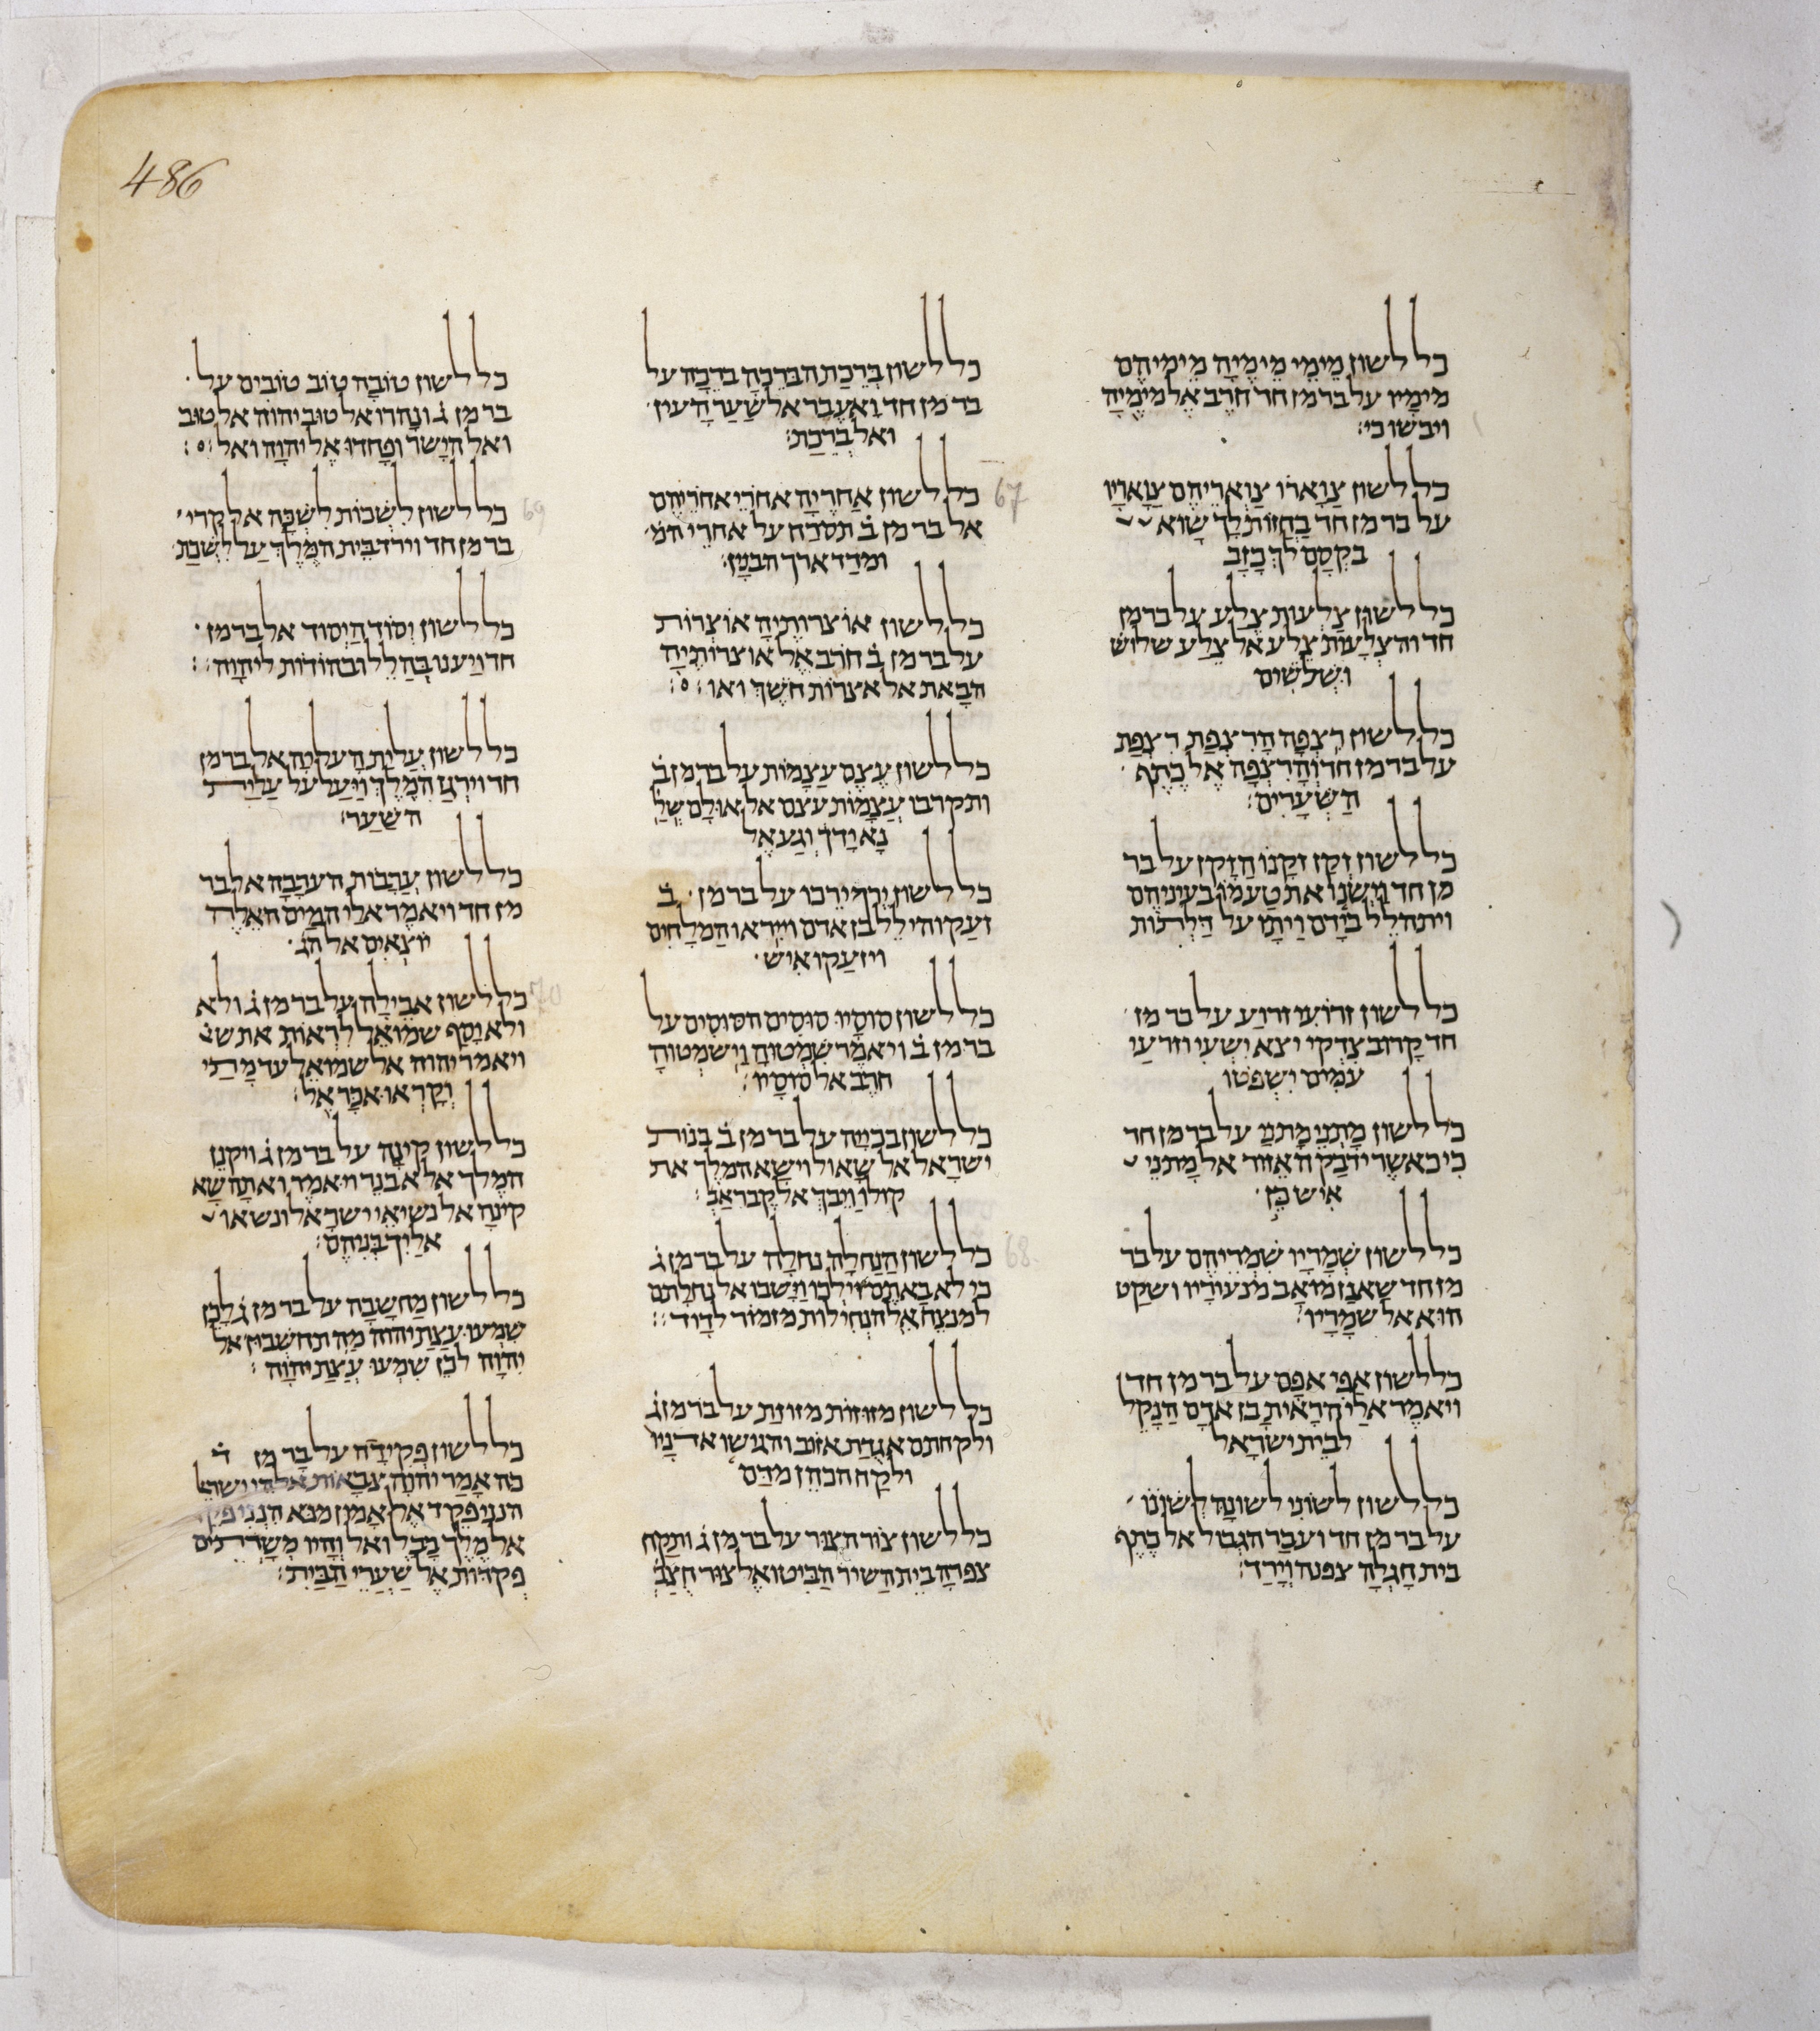 486
כל לשון מימי מימיה מימיהם
מימיו על בר מן חד חרב אל מימיה
ויבשו כי׃
כל לשון צוארו צואריהם צואריו
על בר מן חד בחזות לך שוא
בקסם לך כזב
כל לשון צלעות צלע על בר מן
חד והצלעות צלע אל צלע שלוש
ושלשים
כל לשון רצפה הרצפת רצפת
על בר מן חד והרצפה אל כתף
השערים׃
כל לשון זקן זקנו הזקן על בר
מן חד וישנו את טעמו בעיניהם
ויתהלל בידם ויתו על דלתות
כל לשון זרועי זרוע על בר מן
חד קרוב צדקי יצא ישעי וזרעי
עמים ישפטו
כל לשון מתני מתני על בר מן חד
כי כאשר ידבק האזור אל מתני
איש כן
כל לשון שמריו שמריהם על בר
מן חד שאנן מואב מנעוריו ושקט
הוא אל שמריו׃
כל לשון אפי אפם על בר מן חד
ויאמר אלי הראית בן אדם הנקל
לבית ישראל
כל לשון לשוני לשונה לשוננו
על בר מן חד ועבר הגבול אל כתף
בית חגלה צפנה וירד׃
כל לשון ברכת הברכה ברכה על
בר מן חד ואעבר אל שער העין
ואל ברכת׃
67
כל לשון אחריה אחרי אחריהם
אל בר מן ב תסרח על אחרי המ
ומדד ארך הבנין׃
כל לשון אוצרותיה אוצרות
על בר מן ב חרב אל אוצרותיה
הבאת אל אצרות חשך ואו׃
כל לשון עצם עצמות על בר מן ב
ותקרבו עצמות עצם אל אולם של
נא ידך וגע אל
כל לשון ירך ירכו על בר מן ב
זעק והילל בן אדם וייראו המלחים
ויזעקו איש
כל לשון סוסיו סוסים הסוסים על
בר מן ב ויאמר שמטוה וישמטוה
חרב אל סוסיו׃
כל לשון בכייה על בר מן ב בנות
ישראל אל שאול וישא המלך את
קולו ויבך אל קבר אב׃
68
כל לשון הנחלה נחלה על בר מן ג
כי לא באתם וילכו וישבו אל נחלתם
למנצח אל הנחילות מזמור לדוד׃
כל לשון מזוזות מזוזת על בר מן ג
ולקחתם אגדת אזוב והגישו אדניו
ולקח הכהן מדם
כל לשון צור הצור על בר מן ג ותקח
צפרה בית השיר הביטו אל צור חצב
כל לשון טובה טוב טובים על
בר מן ג ונהרו אל טוב יהוה אל טוב
ואל הישר ופחדו אל יהוה ואל׃
69
כל לשון לשכות לשכה אל קרי
בר מן חד וירד בית המלך על לשכת
כל לשון יסוד היסוד אל בר מן
חד ויענו בהלל ובהודות ליהוה׃
כל לשון עלית העליה אל בר מן
חד וירגז המלך ויעל על עלית
השער׃
כל לשון ערבות הערבה אל בר
מן חד ויאמר אלי המים האלה
יוצאים אל הג
70
כל לשון אבילה על בר מן ג ולא
ולא יסף שמואל לראות את ש
ויאמר יהוה אל שמואל עד מתי
וקראו אכר אל׃
כל לשון קינה על בר מן ג ויקנן
המלך אל אבנר ויאמר ואתה שא
קינה אל נשיאי ישראל ונשאו
אליך בניהם׃
כל לשון מחשבה על בר מן ג לכן
שמעו עצת יהוה מה תחשבון אל
יהוה לכן שמעו עצת יהוה׃
כל לשון פקידה על בר מן ד
כה אמר יהוה צבאות אלהי ישר
הנני פקד אל אמון מנא הנני פק
אל מלך בבל ואל והיו משרתים
פקדות אל שערי הבית׃